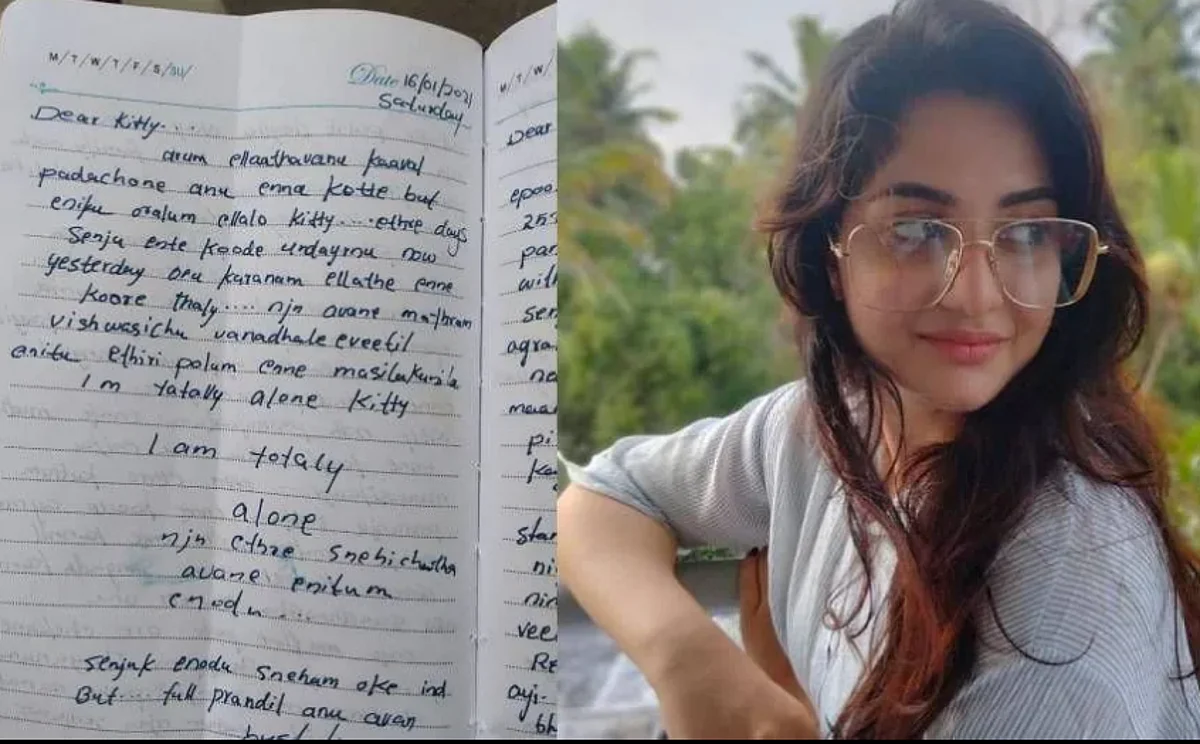 M/T/W/T/F/S/SU/
Date 16/01/2021
Saturday
Dear Kitty...
arum ellaathavanu kaaval
padachone anu enna kotte but
eniku oralum ellalo kitty.... ethre days
Senju ente koode undayrnu now
yesterday oru karanam ellathe enne
koore thaly.... njn avane mathram
vishwasichu vanadhale eveetil
enitu ethiri polum enne masilakunila
I m totally alone Kitty
I am totaly
alone
njn ethre snehichatha
avane enitum
enodu...
senjuk enodu sneham oke ind
But... full prandil anu avan
M/T/W/
Dear
epoo
par
with
ser
agra
pi
star
ni
nin
vee
Re
ayi-